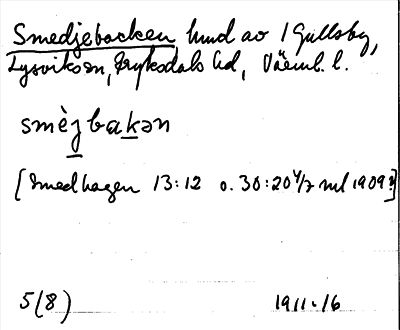 Smedjebacken, hmd av 1 Gullsby,
Lysviks sn, Fryksdals hd, Värml. l.
smèjbakən
[Smedhagen 13:12 o. 30:20 4/7 ml 1909?]
5(8) 1911-16